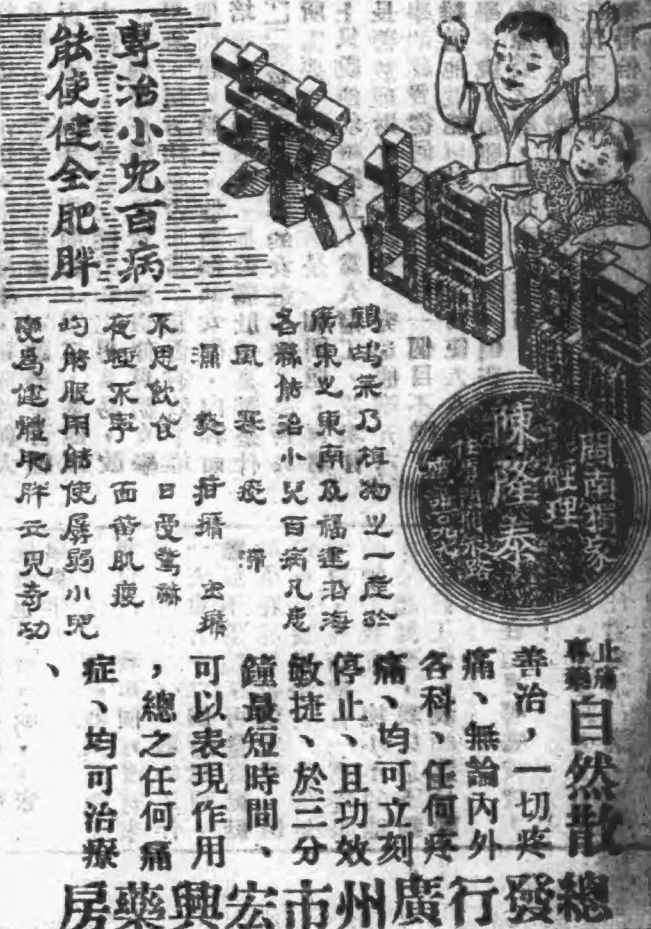 鷓鴣菜
專治小兒百病
能使健全肥胖
鷓鴣菜乃植物之一產於
廣東之東南及福建沿海
各縣能治小兒百病凡患
風寒痰滯
濕熱疳積虫積
不思飲食 日受驚嚇
夜啼不寧 面黃肌瘦
均能服用能使孱弱小兒
變爲健體肥胖云見奇功
閩南獨家
經理
陳隆泰
止痛
專藥
自然散
善治，一切疼
痛、無論內外
各科、任何疼
痛、均可立刻
停止、且功效
敏捷、於三分
鐘最短時間、
可以表現作用
，總之任何痛
症、均可治療
、
總發行廣州市宏興藥房